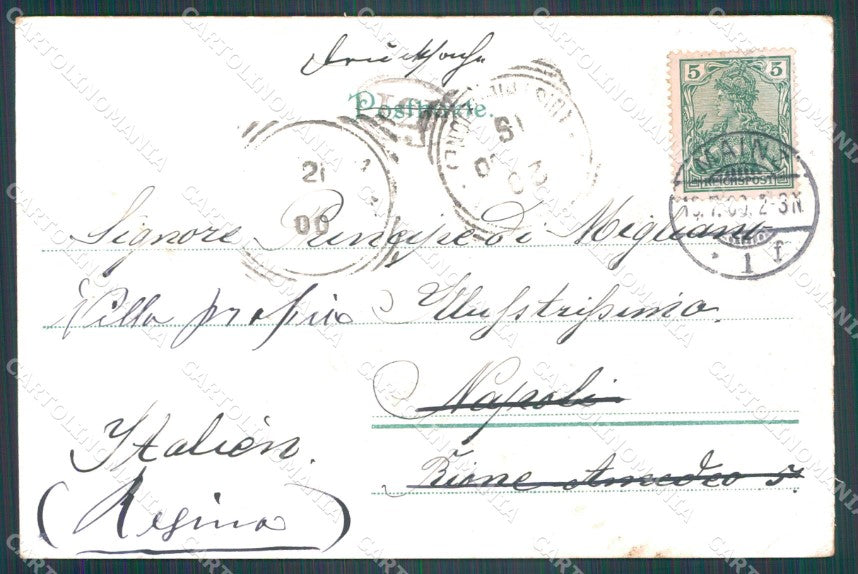 Drucksache
Postkarte.
5 5
REICHSPOST
MAINZ
2-3N
1 f
19
21
00
Signore Principe di Migliano
Villa propria Illustrissimo
Napoli
Rione Amedeo 5.
Italien.
(Regina)
CARTOLINOMANIA